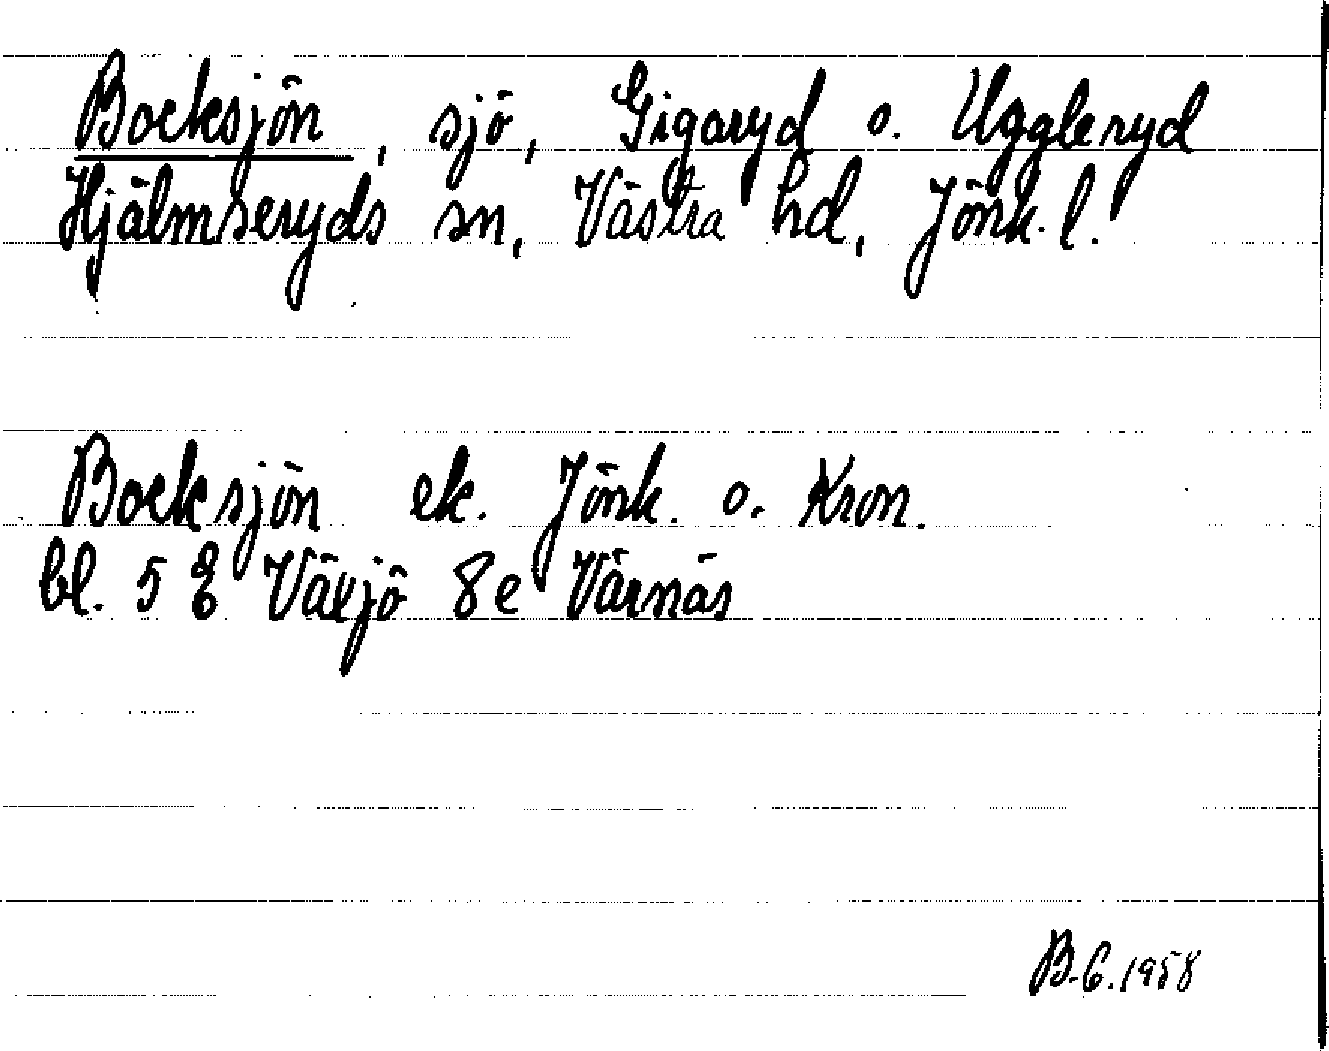 Bocksjön, sjö, Gigaryd o. Uggleryd
Hjälmseryds sn, Västra hd, Jönk. l.
Bocksjön ek. Jönk. o. Kron.
bl. 5 E Växjö 8e Värnäs
B.G. 1958